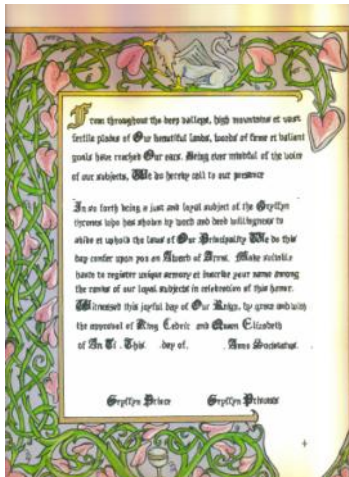 From throughout the deep valleys, high mountains et vast
fertile plains of Our beautiful lands, words of fame et valiant
goals have reached Our ears. Being ever mindful of the voice
of our subjects, We do hereby call to our presence
In so forth being a just and loyal subject of the Gryffyn
thrones who has shown by word and deed willingness to
abide et uphold the laws of Our Principality We do this
day confer upon you an Award of Arms. Make suitable
haste to register unique armory et inscribe your name among
the ranks of our loyal subjects in celebration of this honor.
Witnessed this joyful day of Our Reign, by grace and with
the approval of King Cedric and Queen Elizabeth
of An Ti . This day of, Anno Societatus.
Gryffyn Prince Gryffyn Princess